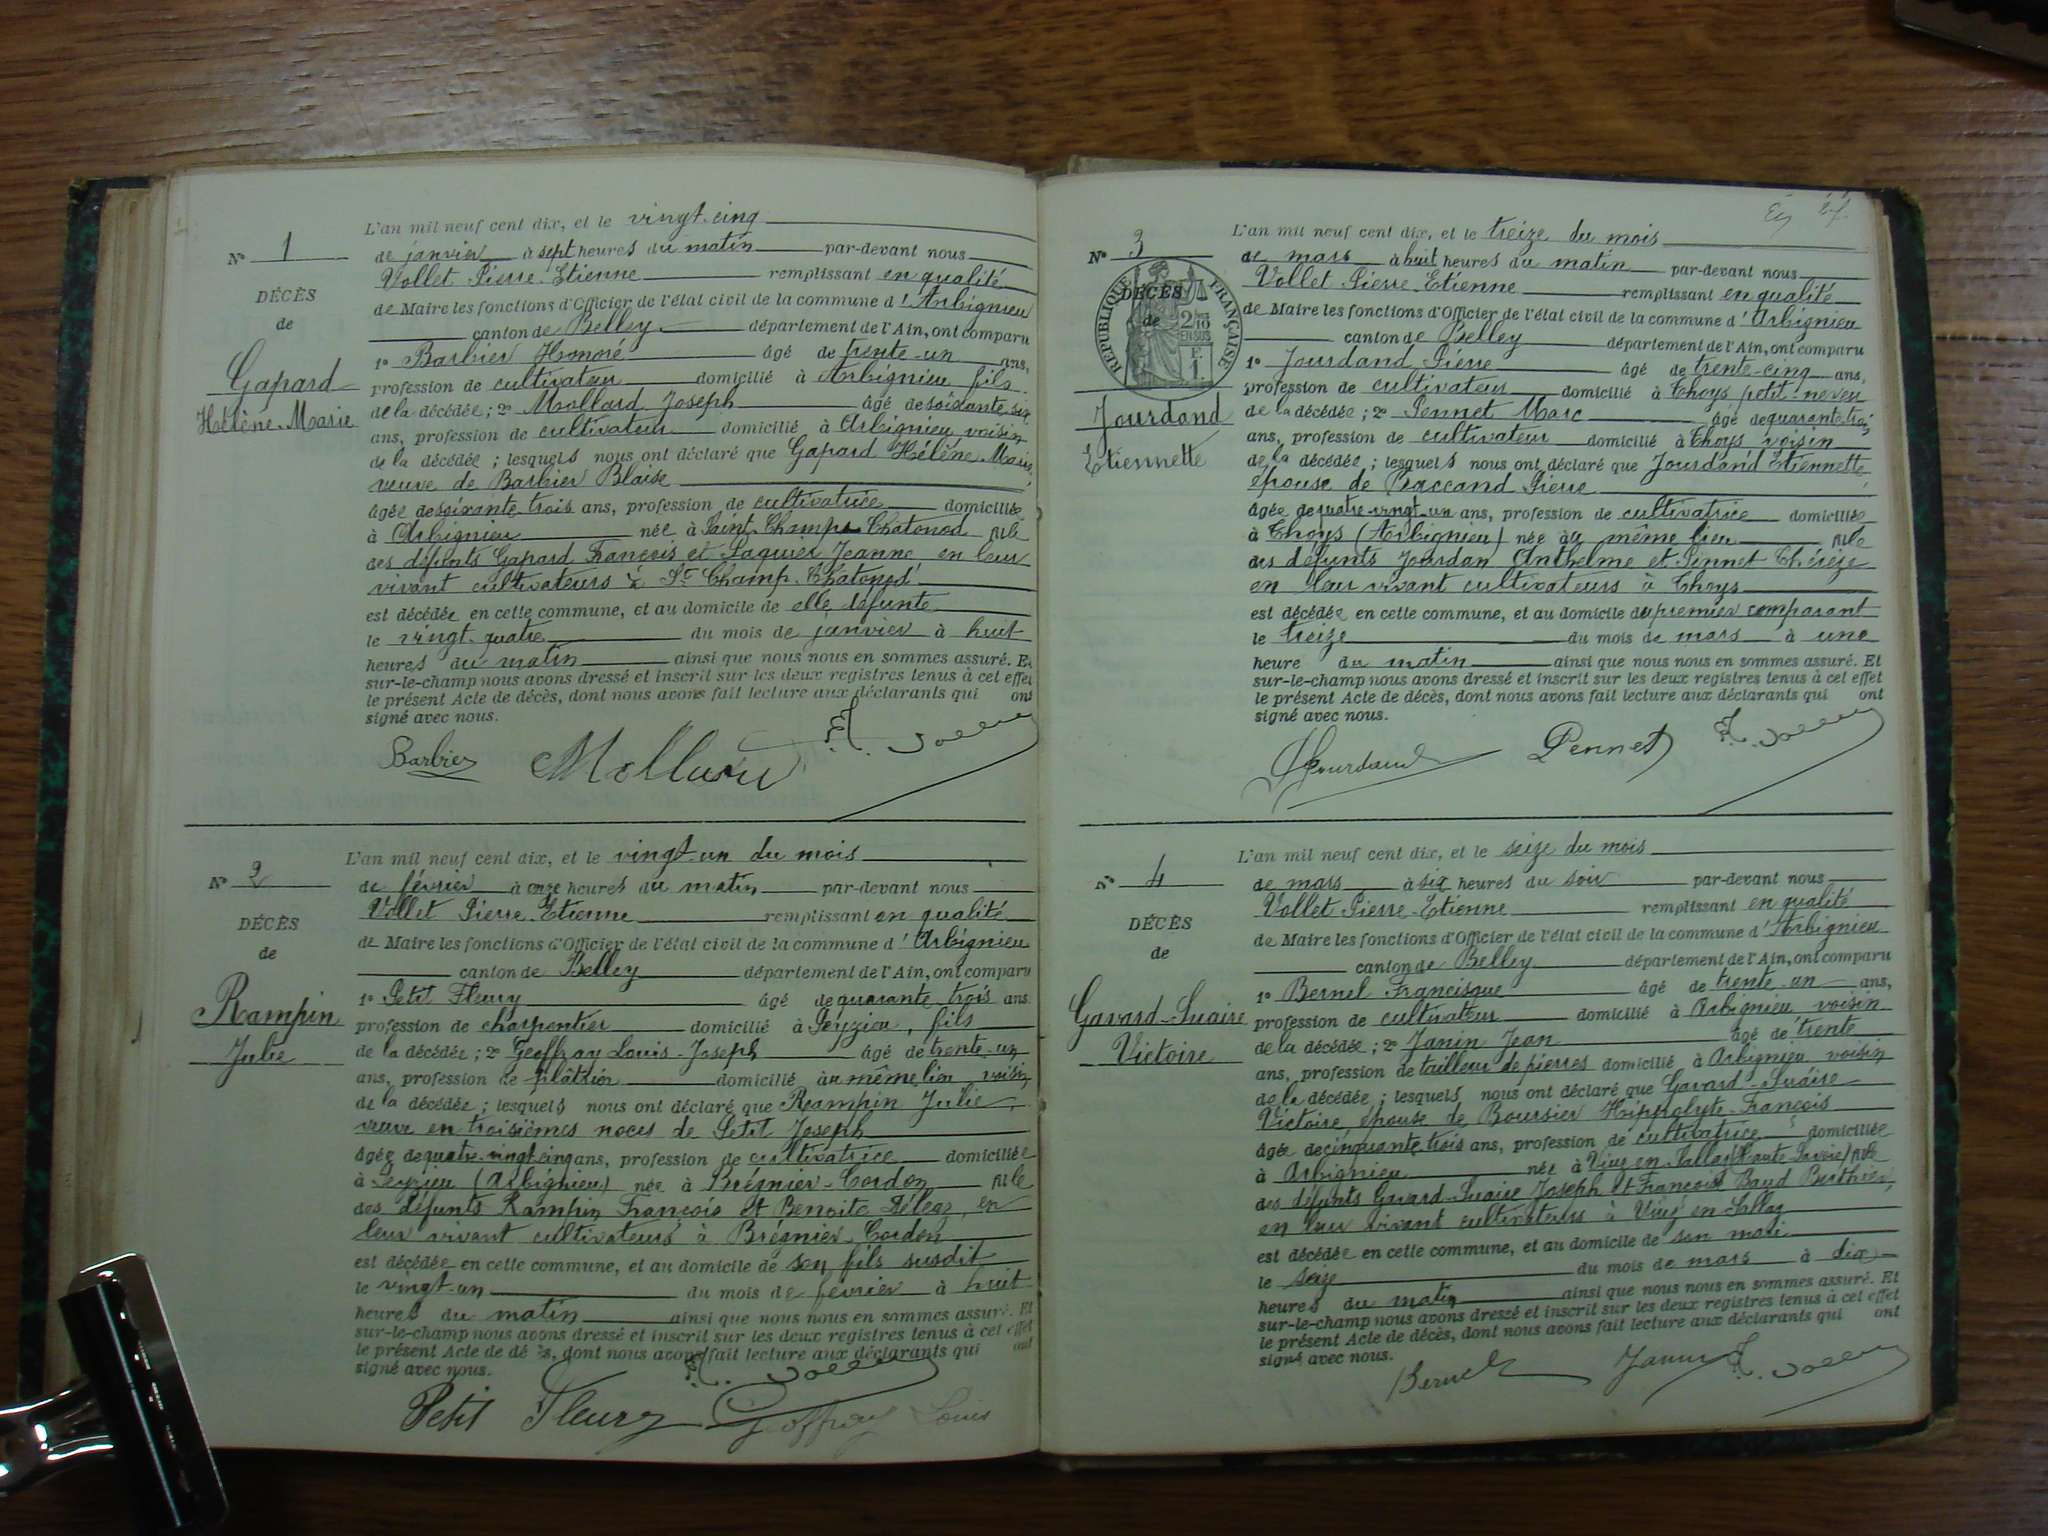 L'an mil neuf cent dix, et le vingt-cinq
N° 1
de janvier à sept heures du matin par-devant nous
Vollet Pierre-Etienne remplissant en qualité
DÉCÈS
de Maire les fonctions d'Officier de l'état civil de la commune d'Arbignieu
de
canton de Belley département de l'Ain, ont comparu
1° Barbier Honoré âgé de trente-un ans,
Gapard
Hélène-Marie
profession de cultivateur domicilié à Arbignieu fils
de la décédée; 2° Mollard Joseph âgé de soixante-six
ans, profession de cultivateur domicilié à Arbignieu voisin
de la décédée; lesquels nous ont déclaré que Gapard Hélène-Marie,
veuve de Barbier Blaise
âgée de soixante-trois ans, profession de cultivatrice domiciliée
à Arbignieu née à Saint-Champ-Chatonod fille
des défunts Gapard François et Paquier Jeanne en leur
vivant cultivateurs à St Champ-Chatonod
est décédée en cette commune, et au domicile de elle défunte
le vingt-quatre du mois de janvier à huit
heures du matin ainsi que nous nous en sommes assuré. Et
sur-le-champ nous avons dressé et inscrit sur les deux registres tenus à cet effet
le présent Acte de décès, dont nous avons fait lecture aux déclarants qui ont
signé avec nous.
Barbier Mollard Vollet
L'an mil neuf cent dix, et le vingt-un du mois
N° 2
de février à onze heures du matin par-devant nous
Vollet Pierre-Etienne remplissant en qualité
DÉCÈS
de Maire les fonctions d'Officier de l'état civil de la commune d'Arbignieu
de
canton de Belley département de l'Ain, ont comparu
Rampin
Julie
1° Petit Fleury âgé de quarante-trois ans
profession de charpentier domicilié à Peyzieu, fils
de la décédée; 2° Geoffray Louis-Joseph âgé de trente-un
ans, profession de plâtrier domicilié au même lieu voisin
de la décédée; lesquels nous ont déclaré que Rampin Julie,
veuve en troisièmes noces de Petit Joseph
âgée de quatre-vingt-cinq ans, profession de cultivatrice domiciliée
à Peyzieu (Arbignieu) née à Brégnier-Cordon fille
des défunts Rampin François et Benoite en
leur vivant cultivateurs à Brégnier-Cordon
est décédée en cette commune, et au domicile de son fils susdit
le vingt-un du mois de février à huit
heures du matin ainsi que nous nous en sommes assuré. Et
sur-le-champ nous avons dressé et inscrit sur les deux registres tenus à cet effet
le présent Acte de décès, dont nous avons fait lecture aux déclarants qui ont
signé avec nous.
Vollet
Petit Fleury Geoffray Louis
L'an mil neuf cent dix, et le treize du mois
N° 3
de mars à huit heures du matin par-devant nous
Vollet Pierre-Etienne remplissant en qualité
DÉCÈS
de Maire les fonctions d'Officier de l'état civil de la commune d'Arbignieu
de
RÉPUBLIQUE FRANÇAISE
2/10 EN SUS
1 F.
canton de Belley département de l'Ain, ont comparu
1° Jourdand Pierre âgé de trente-cinq ans,
profession de cultivateur domicilié à Thoys petit-neveu
Jourdand
Etiennette
de la décédée; 2° Pennet Marc âgé de quarante-trois
ans, profession de cultivateur domicilié à Thoys voisin
de la décédée; lesquels nous ont déclaré que Jourdand Etiennette,
épouse de Braccand Pierre
âgée de quatre-vingt-un ans, profession de cultivatrice domiciliée
à Thoys (Arbignieu) née au même lieu fille
des défunts Jourdan Anthelme et Pennet Thérèze
en leur vivant cultivateurs à Thoys
est décédée en cette commune, et au domicile du premier comparant
le treize du mois de mars à une
heure du matin ainsi que nous nous en sommes assuré. Et
sur-le-champ nous avons dressé et inscrit sur les deux registres tenus à cet effet
le présent Acte de décès, dont nous avons fait lecture aux déclarants qui ont
signé avec nous.
Jourdand Pennet Vollet
L'an mil neuf cent dix, et le seize du mois
N° 4
de mars à six heures du soir par-devant nous
Vollet Pierre-Etienne remplissant en qualité
DÉCÈS
de Maire les fonctions d'Officier de l'état civil de la commune d'Arbignieu
de
canton de Belley département de l'Ain, ont comparu
Gavard-Suaire
Victoire
1° Bernel Francisque âgé de trente-un ans,
profession de cultivateur domicilié à Arbignieu voisin
de la décédée; 2° Janin Jean âgé de trente
ans, profession de tailleur de pierres domicilié à Arbignieu voisin
de la décédée; lesquels nous ont déclaré que Gavard-Suaire
Victoire, épouse de Boursier Hippolyte-François
âgée de cinquante-trois ans, profession de cultivatrice domiciliée
à Arbignieu née à Viuz-en-Sallaz (Haute-Savoie) fille
des défunts Gavard-Suaire Joseph et François Baud Berthier,
en leur vivant cultivateurs à Viuz en Sallaz
est décédée en cette commune, et au domicile de son mari
le seize du mois de mars à dix
heures du matin ainsi que nous nous en sommes assuré. Et
sur-le-champ nous avons dressé et inscrit sur les deux registres tenus à cet effet
le présent Acte de décès, dont nous avons fait lecture aux déclarants qui ont
signé avec nous.
Bernel Janin Vollet